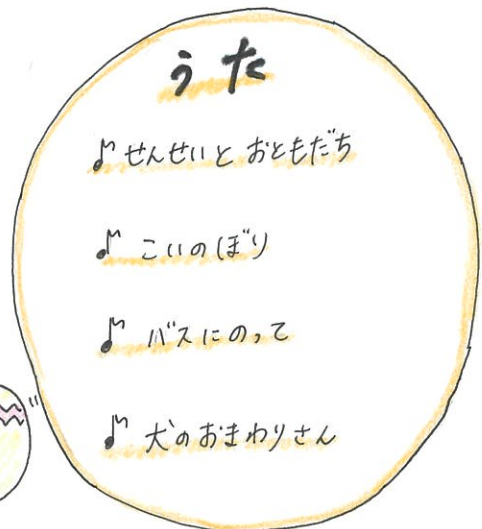 うた
♪せんせいと おともだち
♪こいのぼり
♪バスにのって
♪犬のおまわりさん